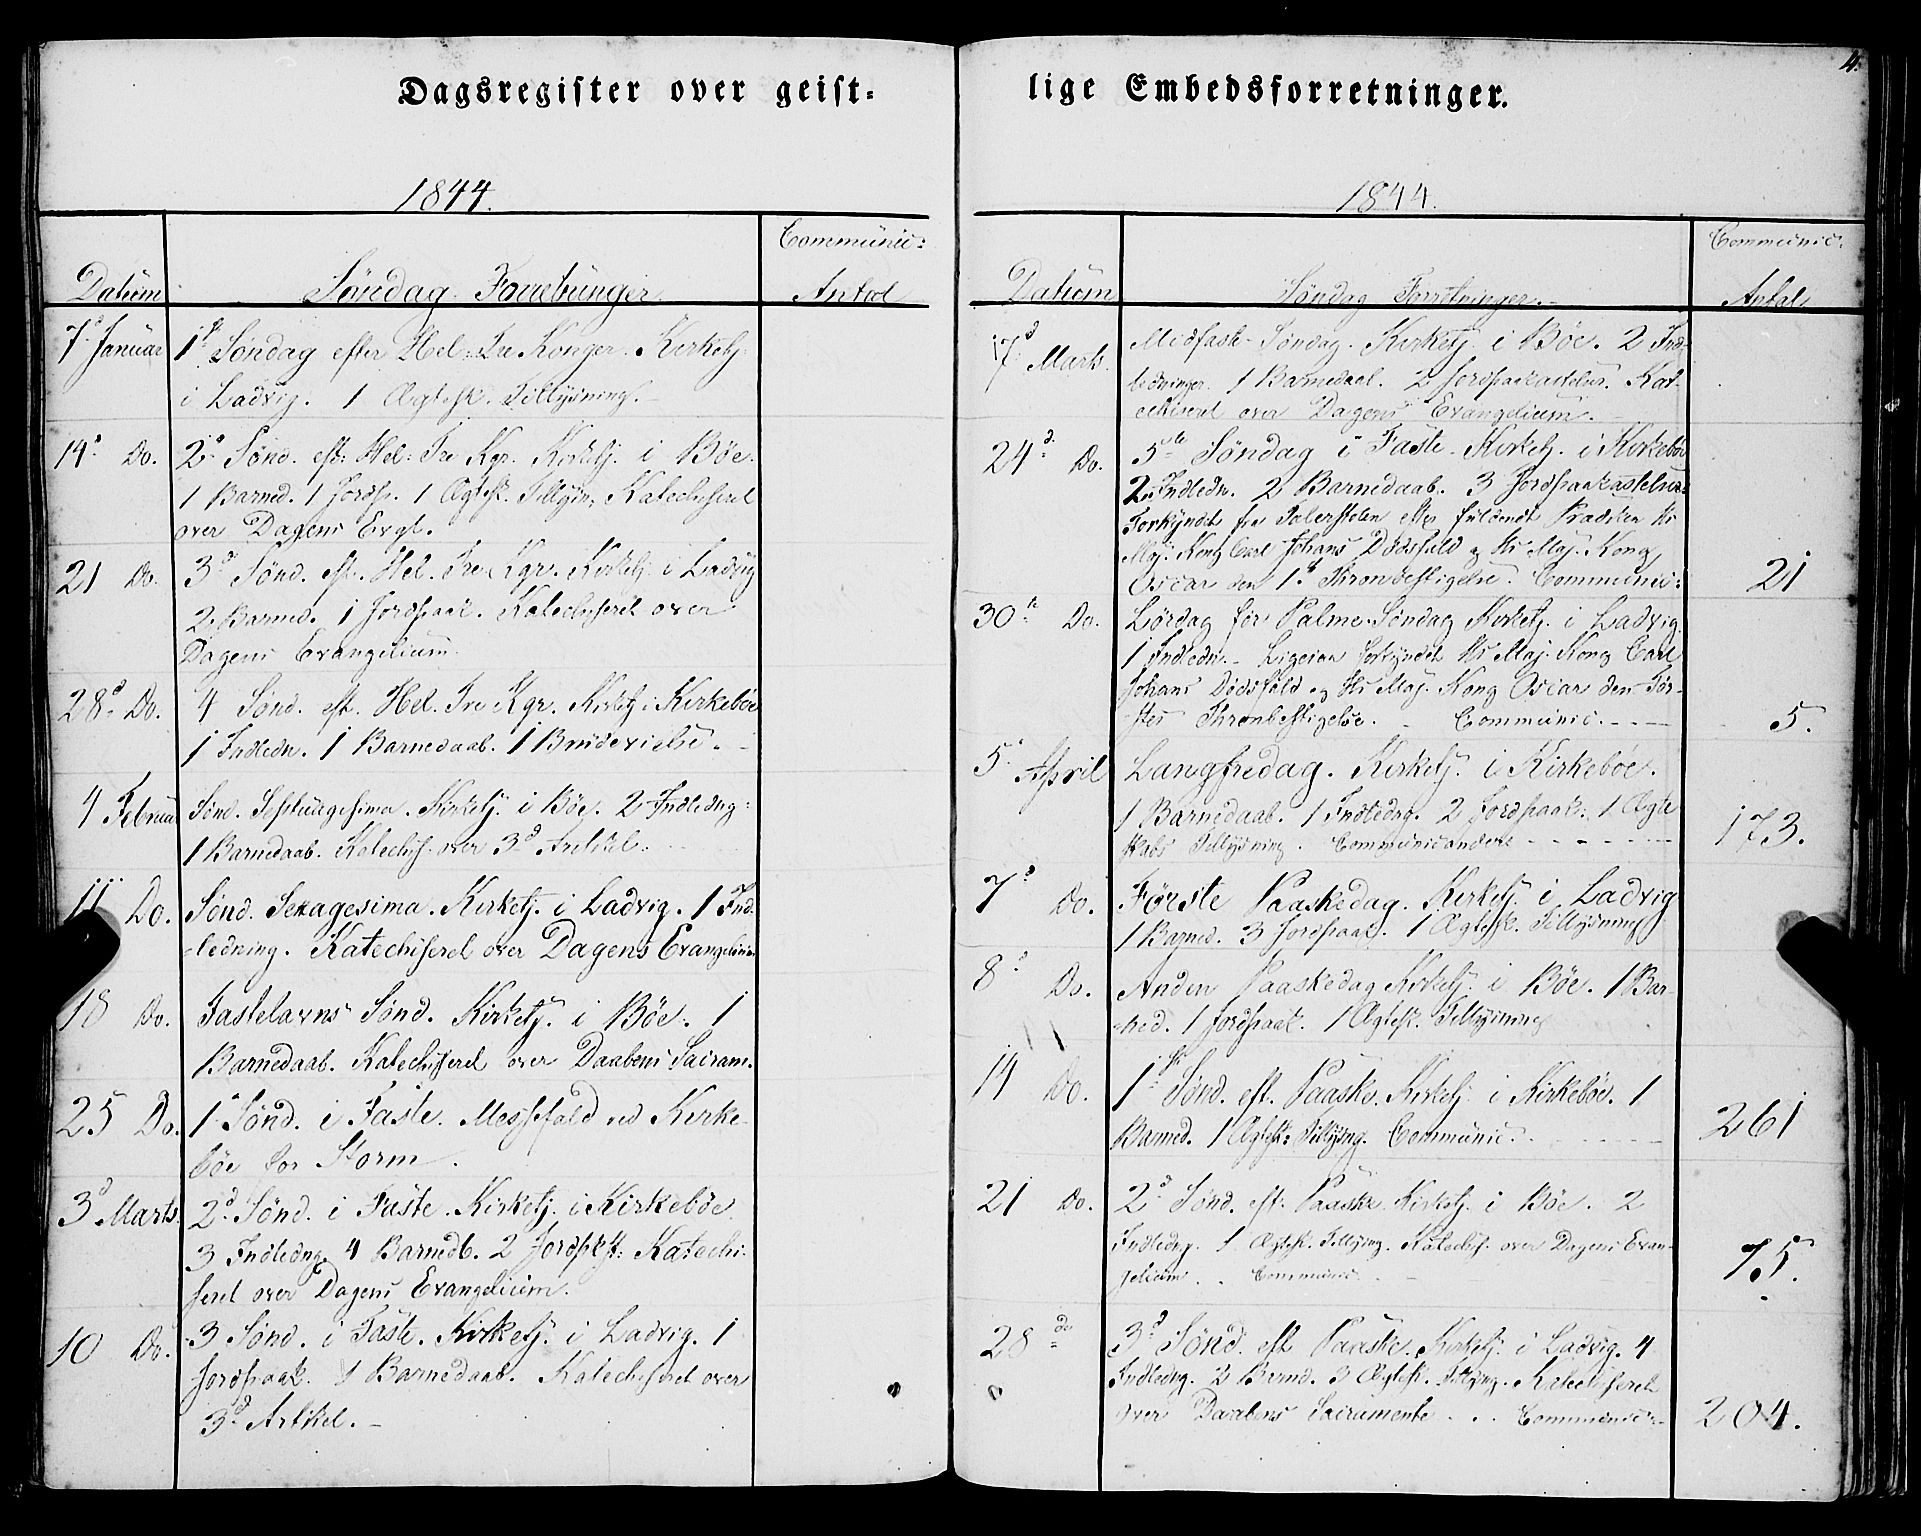 Dagsregister over geist-
1844.
Datum Søndag Forrebunger Communic: Antal
7d Januar 1st Søndag efter Hel: Tre Konger. Kirketj.
i Ladvig. 1 Ægtesk. Tillysning.
14d Do. 2d Sønd. eft: Hel: Tre Kgr. Kirketj. i Böe.
1 Barned. 1 Jordp. 1 Ægtesk. Tillysn, Katechiseret
over Dagens Evgl.
21 Do. 3d Sønd. eft. Hel. Tre Kgr. Kirketj. i Ladvig
2 Barned. 1 Jordpaak. Katechiseret over
Dagens Evangelium.
28d Do. 4 Sønd. eft. Hel. Tre Kgr. Kirketj i Kirkebøe
1 Indledn. 1 Barnedaab. 1 Brudevielse.
4 Februar Sønd. Septuagesima. Kirketj. i Böe. 2 Indledng:
1 Barnedaab. Katechis. over 3d Artikel.
11 Do. Sønd. Sexagesima. Kirketj. i Ladvig. 1 Ind-
ledning. Katechiseret over Dagens Evangelium
18 Do. Fastelavns Sønd. Kirketj. i Böe. 1
Barnedaab. Katechiseret over Daabens Sacram.
25 Do. 1 Sønd. i Faste. Messefald ved Kirke-
böe for Storm.
3d Marts. 2d Sønd. i Faste. Kirketj. i Kirkeböe.
3 Indledng. 4 Barnedb. 2 Jordpkst: Katechi-
seret over Dagens Evangelium.
10 Do. 3 Sønd. i Faste. Kirketj. i Ladvig. 1
Jordpaak. 1 Barnedaab. Katechiseret over
3d Artikel.
lige Embedsforretninger.
4.
1844.
Datum Søndag Forretninger. Communic. Antal
17d Marts. Midfaste-Søndag. Kirketj. i Böe. 2 Ind-
ledninger. 1 Barnedaab. 2 Jordpaakastelser. Kat-
echiseret over Dagens Evangelium.
24d Do. 5te Søndag i Faste. Kirketj. i Kirkeböe
2 Indledn. 2 Barnedaab. 3 Jordpaakastelser
Forkyndt fra Talerstolen efter fuldendt Prædiken Hs
Maj. Kong Carl Johans Dødsfald og Hs Maj. Kong
Oscar den 1st Thronbestigelse. Communic: 21
30te Do. Lørdag før Palme-Søndag Kirketj. i Ladvig.
1 Indledn. Ligesaa forkyndet Hs Maj. Kong Carl
Johans Dødsfald og Hs Maj. Kong Oscar den För-
stes Thronbestigelse. Communic. 5.
5 April Langfredag. Kirketj. i Kirkeböe.
1 Barnedaab. 1 Indledng. 2 Jordpaak: 1 Ægte
skabs Tillysning. Communicanders 173.
7d Do. Første Paaskedag. Kirketj. i Ladvig
1 Barned. 3 Jordpaak. 1 Ægtesk. Tillysning
8d Do. Anden Paaskedag Kirketj. i Böe. 1 Bar-
ned. 1 Jordpaak. 1 Ægtesk. Tillysning
14 Do. 1st Sønd. eft. Paaske. Kirketj. i Kirkeböe. 1
Barned. 1 Ægtesk. Tillysng. Communic. 261
21 Do. 2d Sønd. eft: Paaske Kirketj. i Böe. 2
Indledng. 1 Ægtesk. Tillysng. Katechis. over Dagens Evan-
gelium. Communic. 75.
28de 3d Sønd. eft Paaske. Kirketj. i Ladvig. 4
Indledng. 2 Barnd. 3 Ægtesk. Tillysng. Katechiseret
over Daabens Sacramente. Communic: 204.